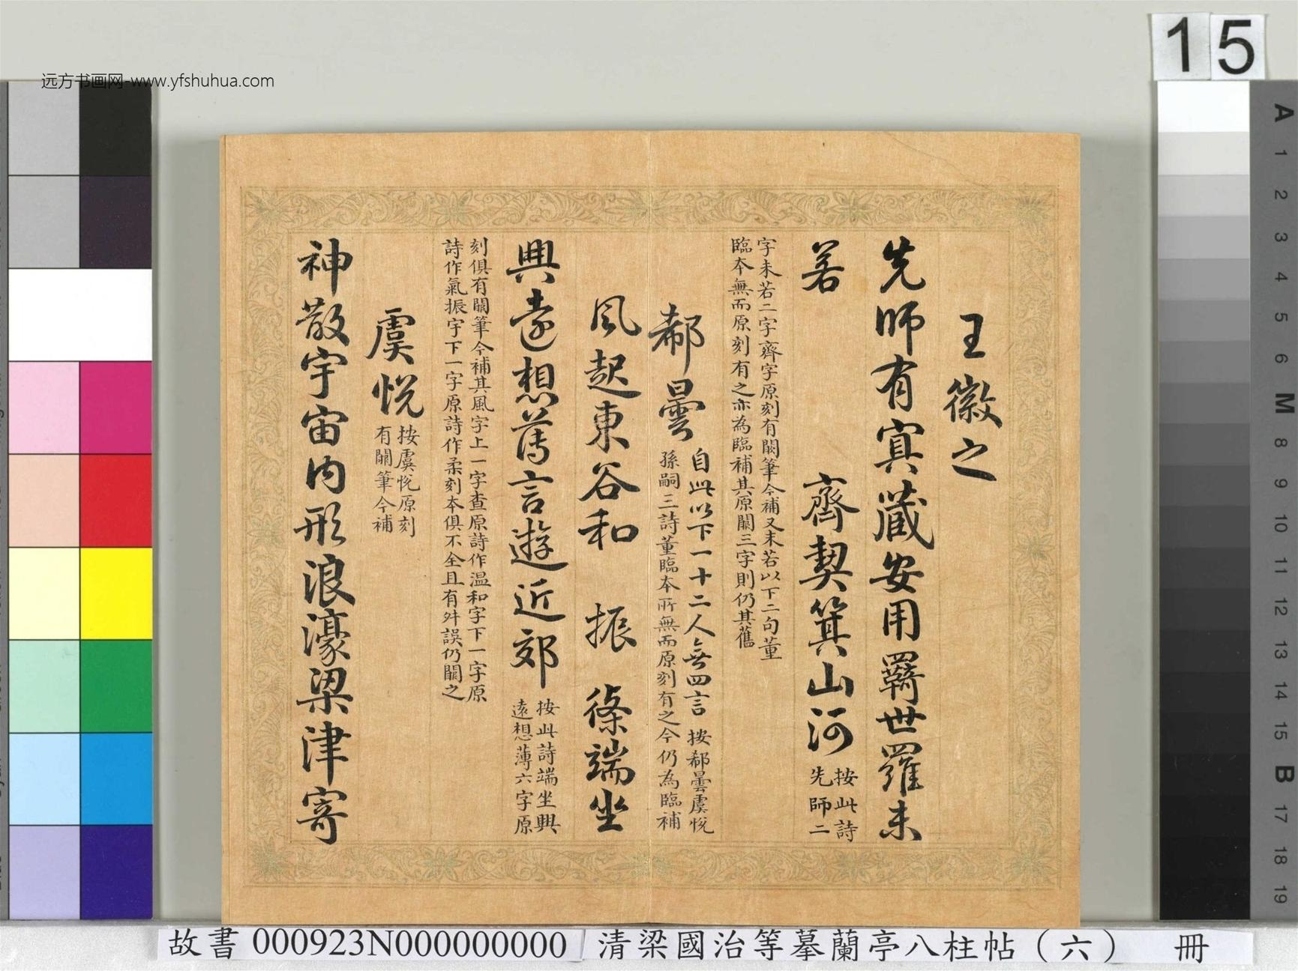 远方书画网-www.yfshuhua.com
15
王徽之
先師有寘藏安用羈世羅未
若　　　齊契箕山河 按此詩
先師二
字未若二字齊字原刻有闕筆今補又未若以下二句董
臨本無而原刻有之亦為臨補其原闕三字則仍其舊
郗曇 自此以下一十二人無四言 按郗曇虞悅
孫嗣三詩董臨本所無而原刻有之今仍為臨補
風起東谷和　振　條端坐
興遠想薄言遊近郊 按此詩端坐興
遠想薄六字原
刻俱有闕筆今補其風字上一字查原詩作溫和字下一字原
詩作氣振字下一字原詩作柔刻本俱不全且有舛誤仍闕之
虞悅 按虞悅原刻
有闕筆今補
神散宇宙內形浪濠梁津寄
A
1
2
3
4
5
6
M
8
9
10
11
12
13
14
15
B
17
18
19
故書 000923N000000000 清梁國治等摹蘭亭八柱帖（六） 冊